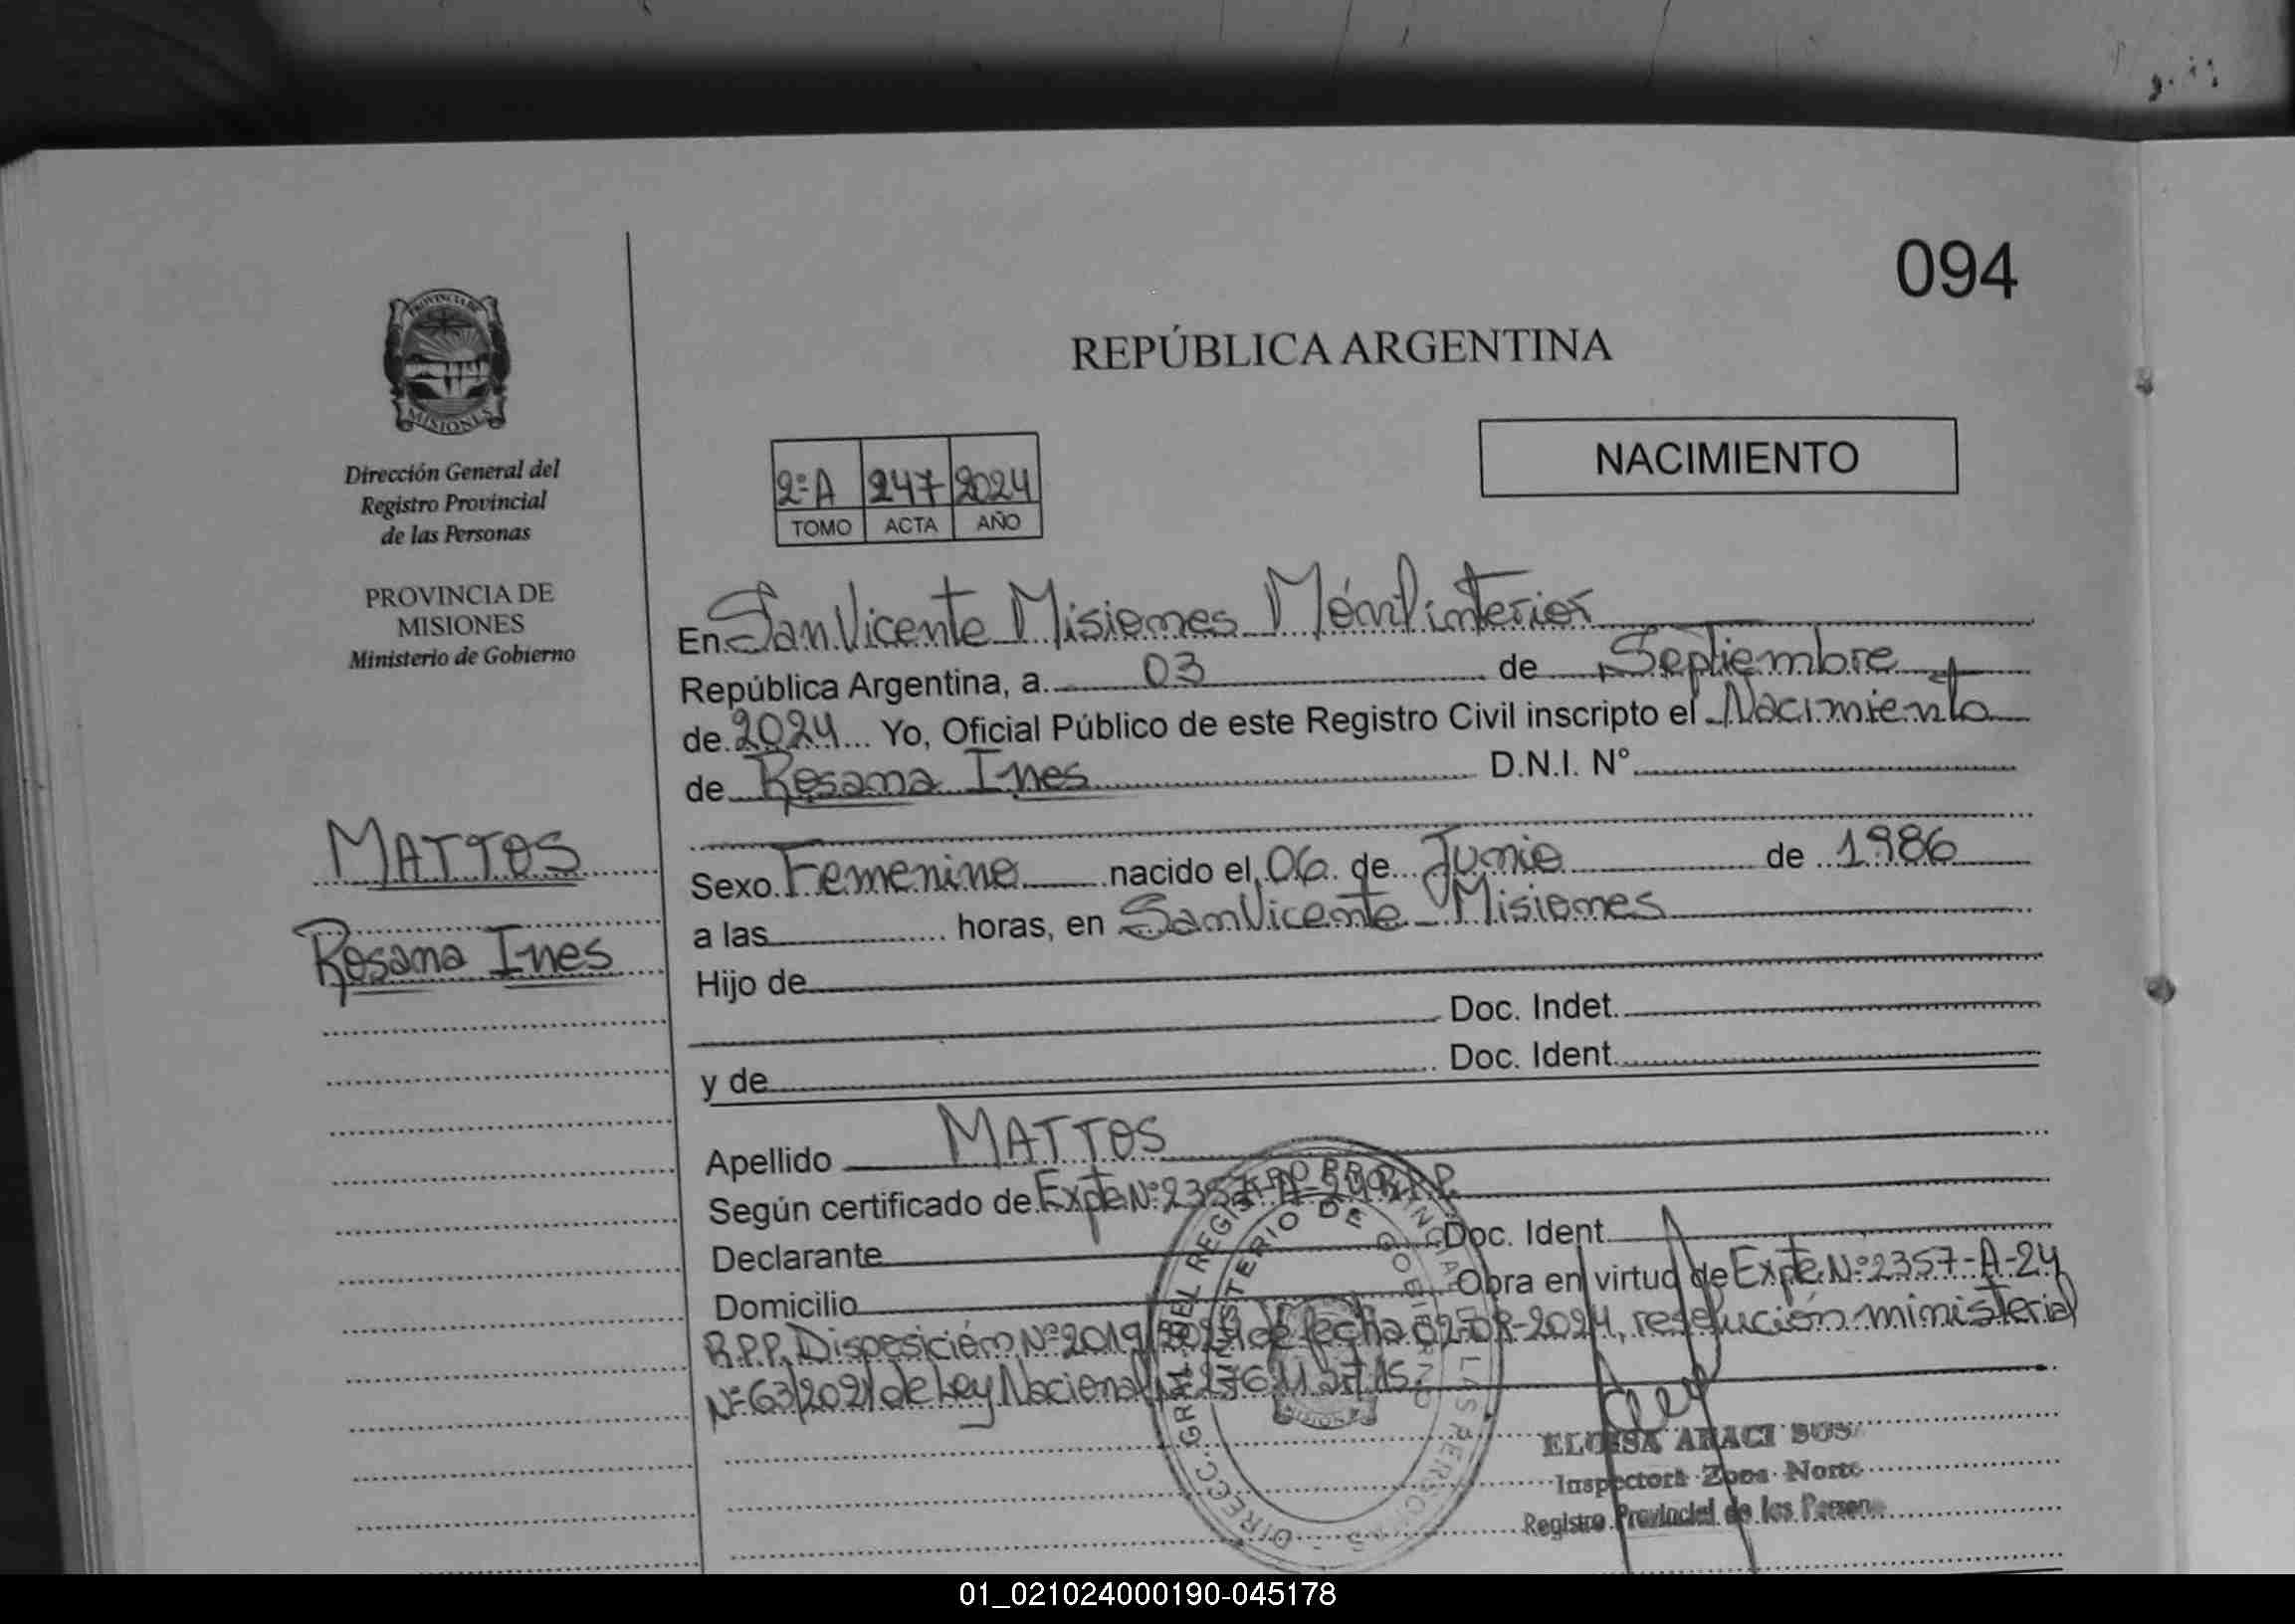 094
PROVINCIA DE
MISIONES
Dirección General del
Registro Provincial
de las Personas
PROVINCIA DE
MISIONES
Ministerio de Gobierno
MATTOS
Rosana Ines
REPÚBLICA ARGENTINA
NACIMIENTO
2ºA 247 2024
TOMO ACTA AÑO
En San Vicente Misiones Móvil interior
República Argentina, a 03 de Septiembre
de 2024 Yo, Oficial Público de este Registro Civil inscripto el Nacimiento
de Rosana Ines D.N.I. N°
Sexo Femenino nacido el 06 de Junio de 1986
a las horas, en San Vicente Misiones
Hijo de
Doc. Indet.
y de Doc. Ident.
Apellido MATTOS
Según certificado de Expte Nº 2357-A-24 R.P.P.
Declarante Doc. Ident.
Domicilio Obra en virtud de Expte Nº 2357-A-24
R.P.P. Disposición Nº 2019/2024 de fecha 02-08-2024, resolución ministerial
Nº 63/2021 de Ley Nacional
DIRECC. GRAL. DEL REGISTRO PROVINCIAL DE LAS PERSONAS
MINISTERIO DE GOBIERNO
MISIONES
ELOISA ARACI SOSA
Inspectora Zona Norte
Registro Provincial de las Persona
01_021024000190-045178